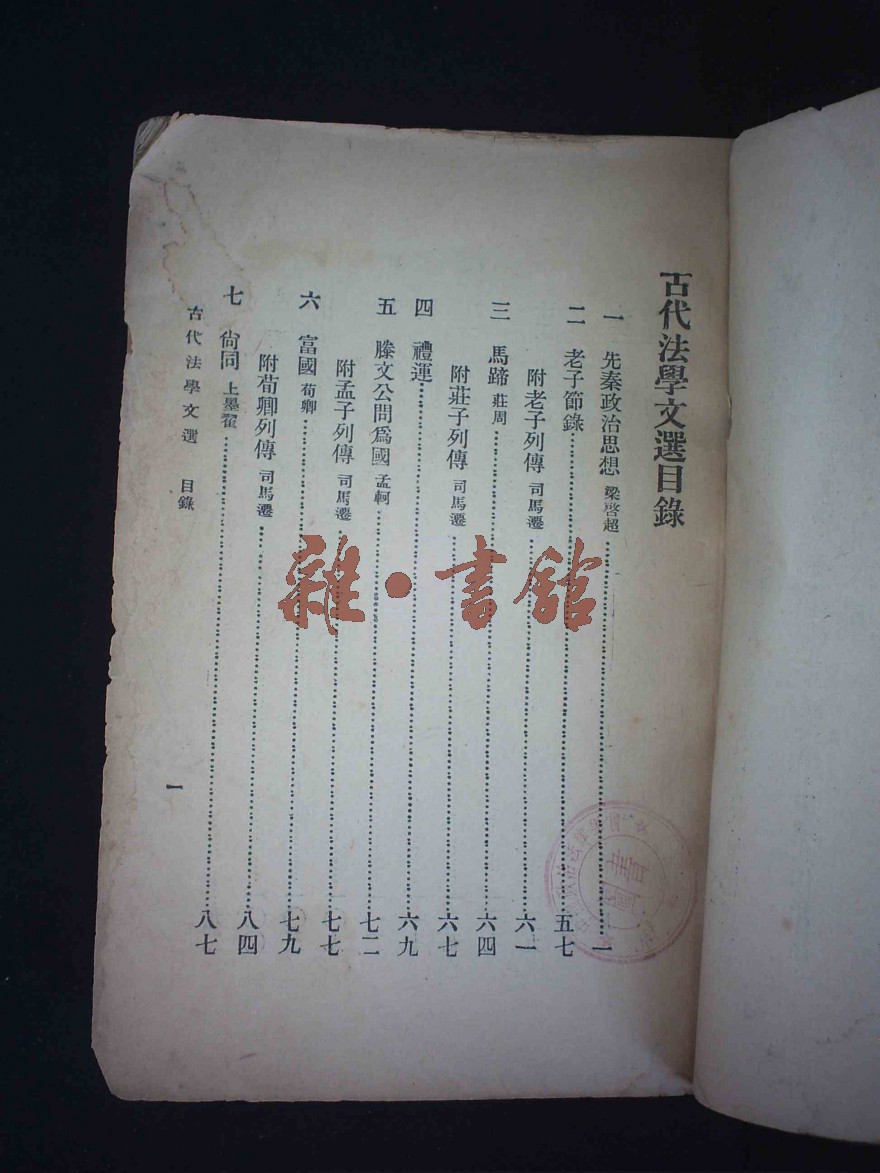 古代法學文選目錄
一 先秦政治思想 梁啓超……一
二 老子節錄……五七
附老子列傳 司馬遷……六一
三 馬蹄 莊周……六四
附莊子列傳 司馬遷……六七
四 禮運……六九
五 滕文公問爲國 孟軻……七二
附孟子列傳 司馬遷……七七
六 富國 荀卿……七九
附荀卿列傳 司馬遷……八四
七 尙同 上墨翟……八七
古代法學文選 目錄
一
雜·書館